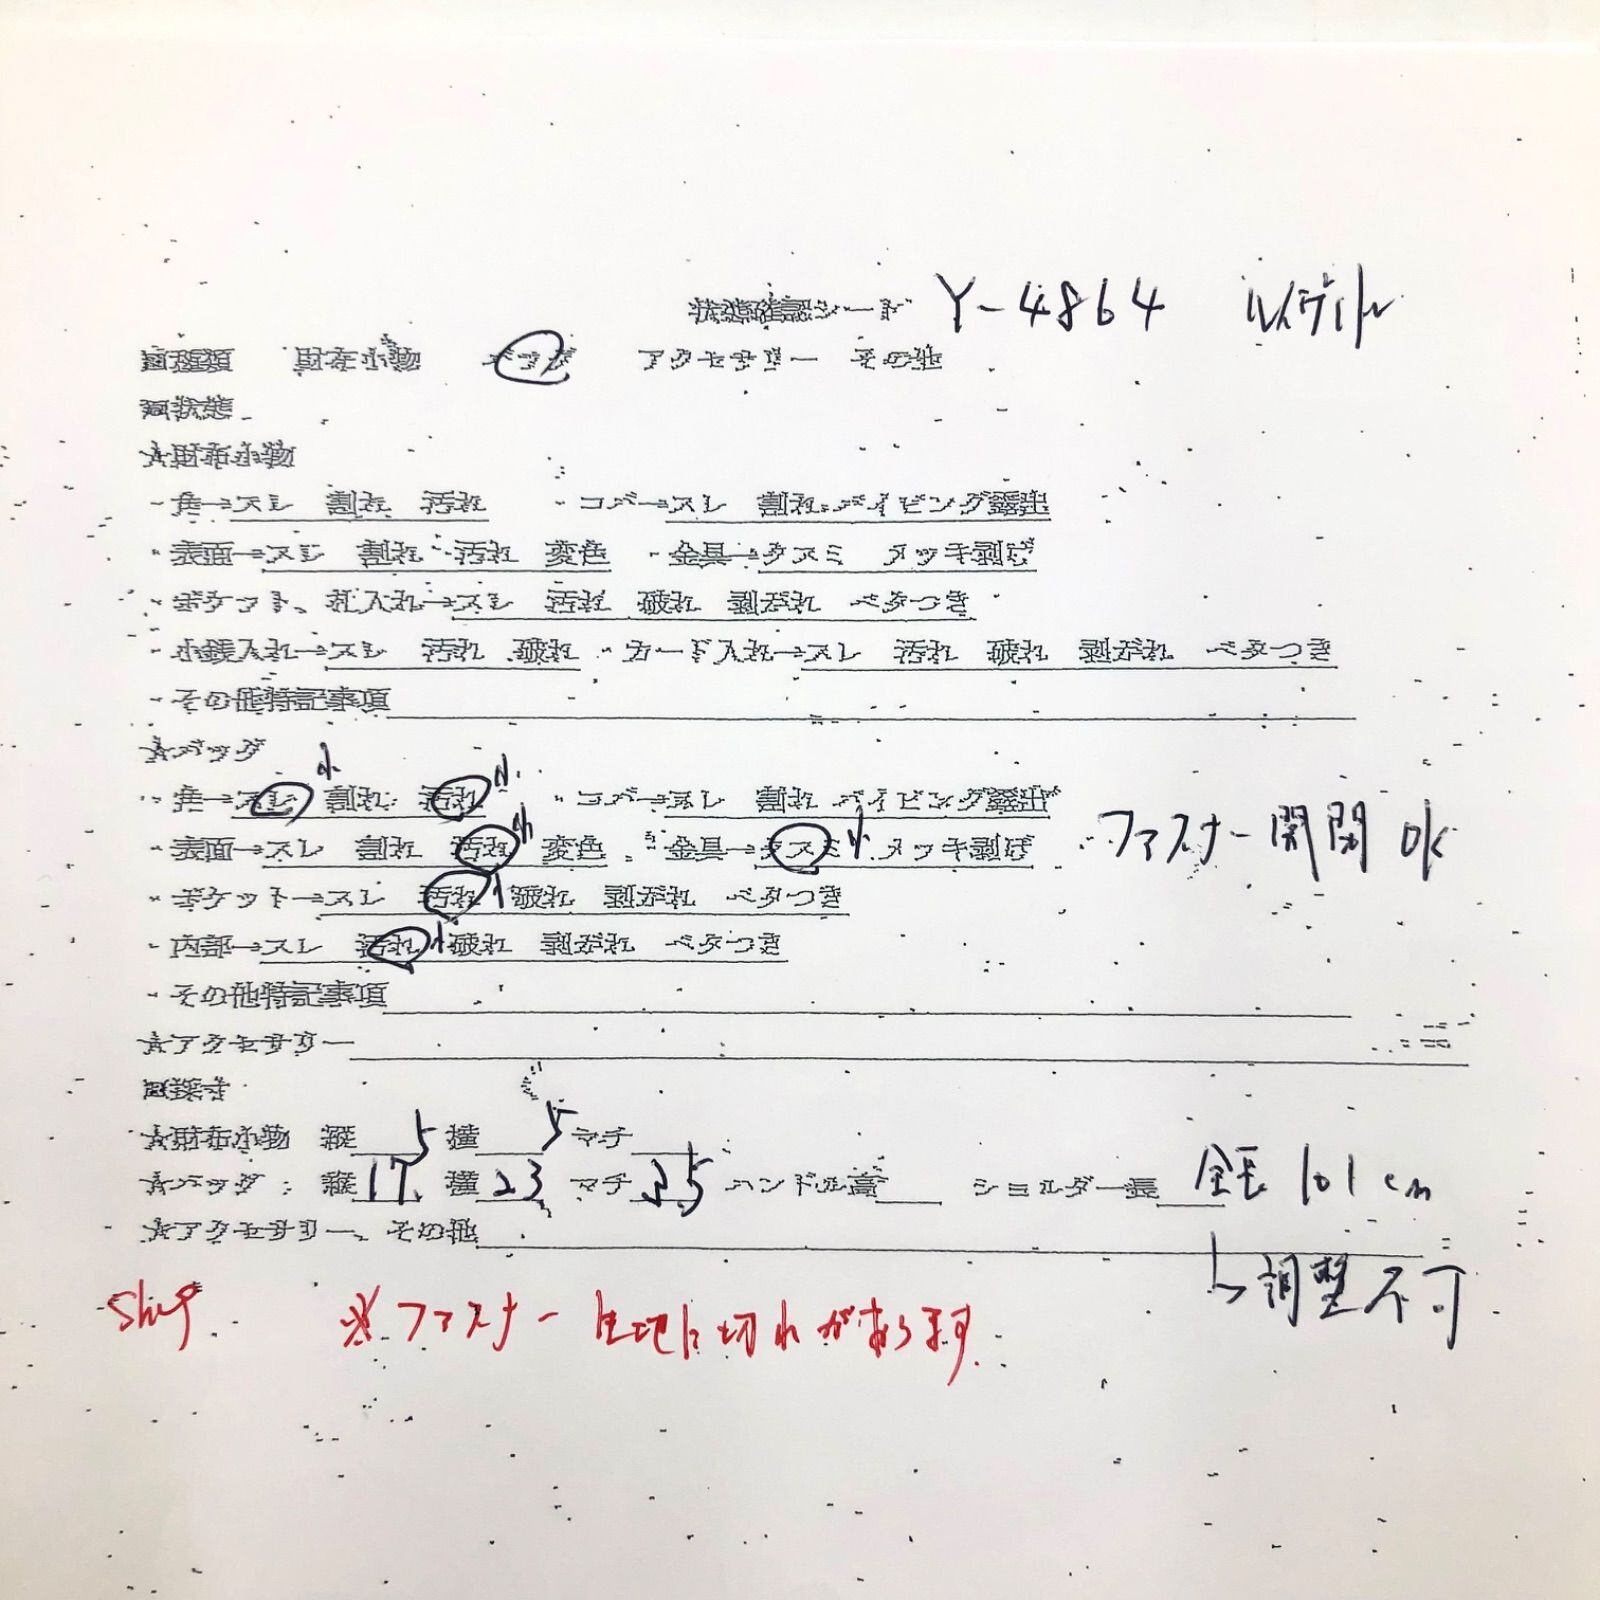 状態確認シート Y-4864 ルイヴィトン
□種類 財布小物 バッグ アクセサリー その他
□状態
☆財布小物
・角→スレ 割れ 汚れ ・コバ→スレ 割れ パイピング露出
・表面→スレ 割れ 汚れ 変色 ・金具→クスミ メッキ剥げ
・ポケット、札入れ→スレ 汚れ 破れ 剥がれ ベタつき
・小銭入れ→スレ 汚れ 破れ ・カード入れ→スレ 汚れ 破れ 剥がれ ベタつき
・その他特記事項
☆バッグ
・角→スレ 小 割れ 汚れ 小 ・コバ→スレ 割れ パイピング露出
・表面→スレ 割れ 汚れ 変色 ・金具→クスミ 小 メッキ剥げ ファスナー開閉 OK
・ポケット→スレ 汚れ 小 破れ 剥がれ ベタつき
・内部→スレ 汚れ 小 破れ 剥がれ ベタつき
・その他特記事項
☆アクセサリー
□採寸
☆財布小物 縦 5 横 5 マチ
☆バッグ: 縦 17 横 23 マチ 3.5 ハンドル高 ショルダー長 全長 101cm
☆アクセサリー、その他
↳調整不可
※ファスナー生地に切れがあります